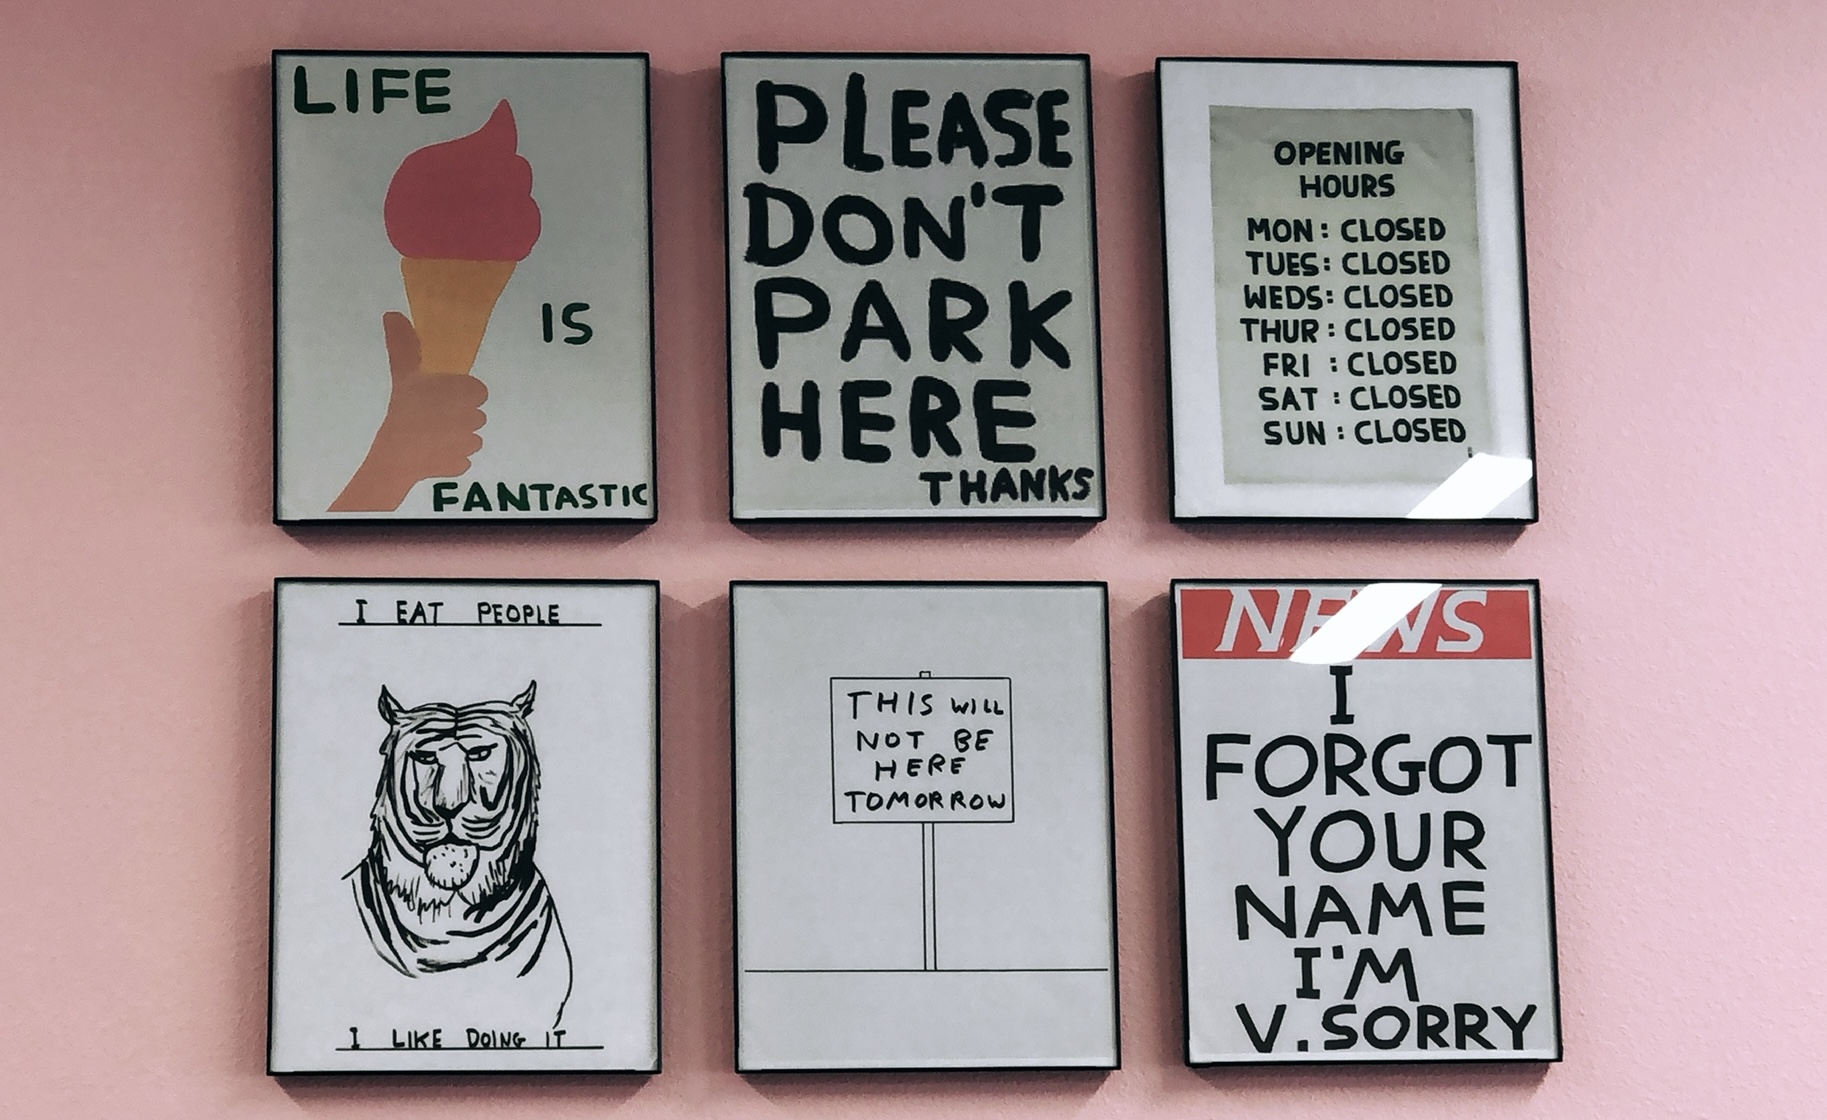 LIFE
IS
FANTASTIC
PLEASE
DON'T
PARK
HERE
THANKS
OPENING
HOURS
MON : CLOSED
TUES : CLOSED
WEDS : CLOSED
THUR : CLOSED
FRI : CLOSED
SAT : CLOSED
SUN : CLOSED
I EAT PEOPLE
I LIKE DOING IT
THIS WILL
NOT BE
HERE
TOMORROW
NEWS
I
FORGOT
YOUR
NAME
I'M
V. SORRY